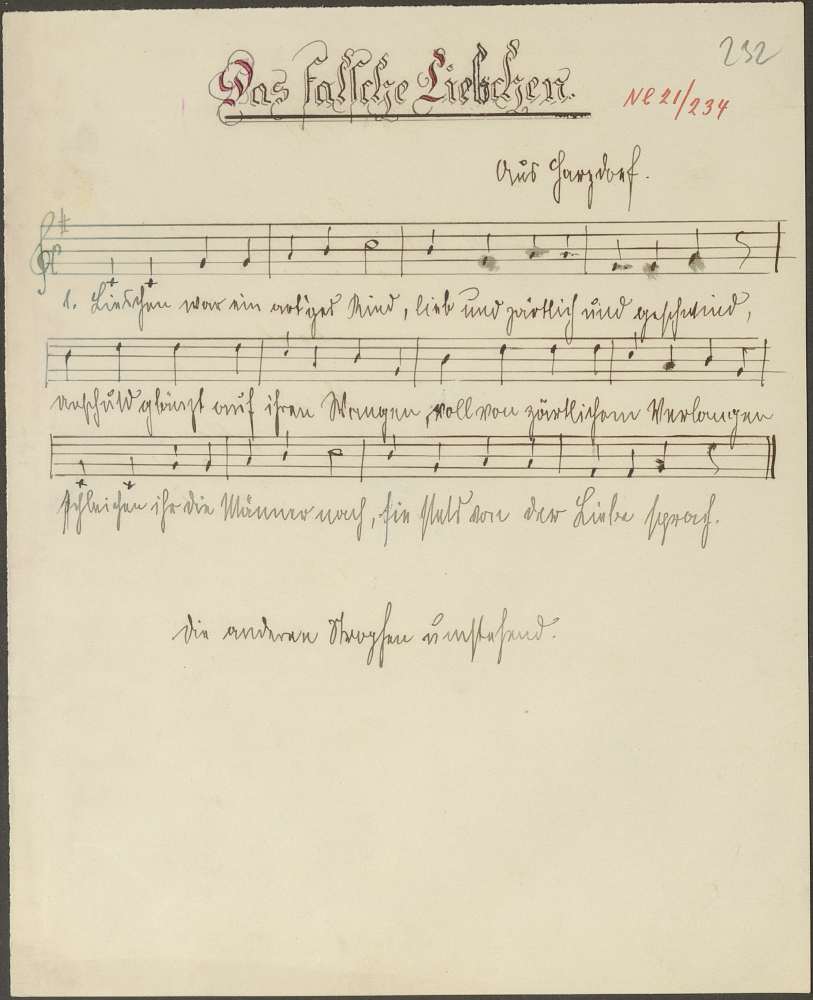 232
Das falsche Liebchen.
NE 21/234
Aus Harzdorf.
1. Lieschen war ein art'ges Kind, lieb und zärtlich und geschwind,
Unschuld glänzt auf ihren Wangen, voll von zärtlichem Verlangen
schleichen ihr die Männer nach, sie stets von der Liebe sprach.
Die anderen Strophen umstehend.